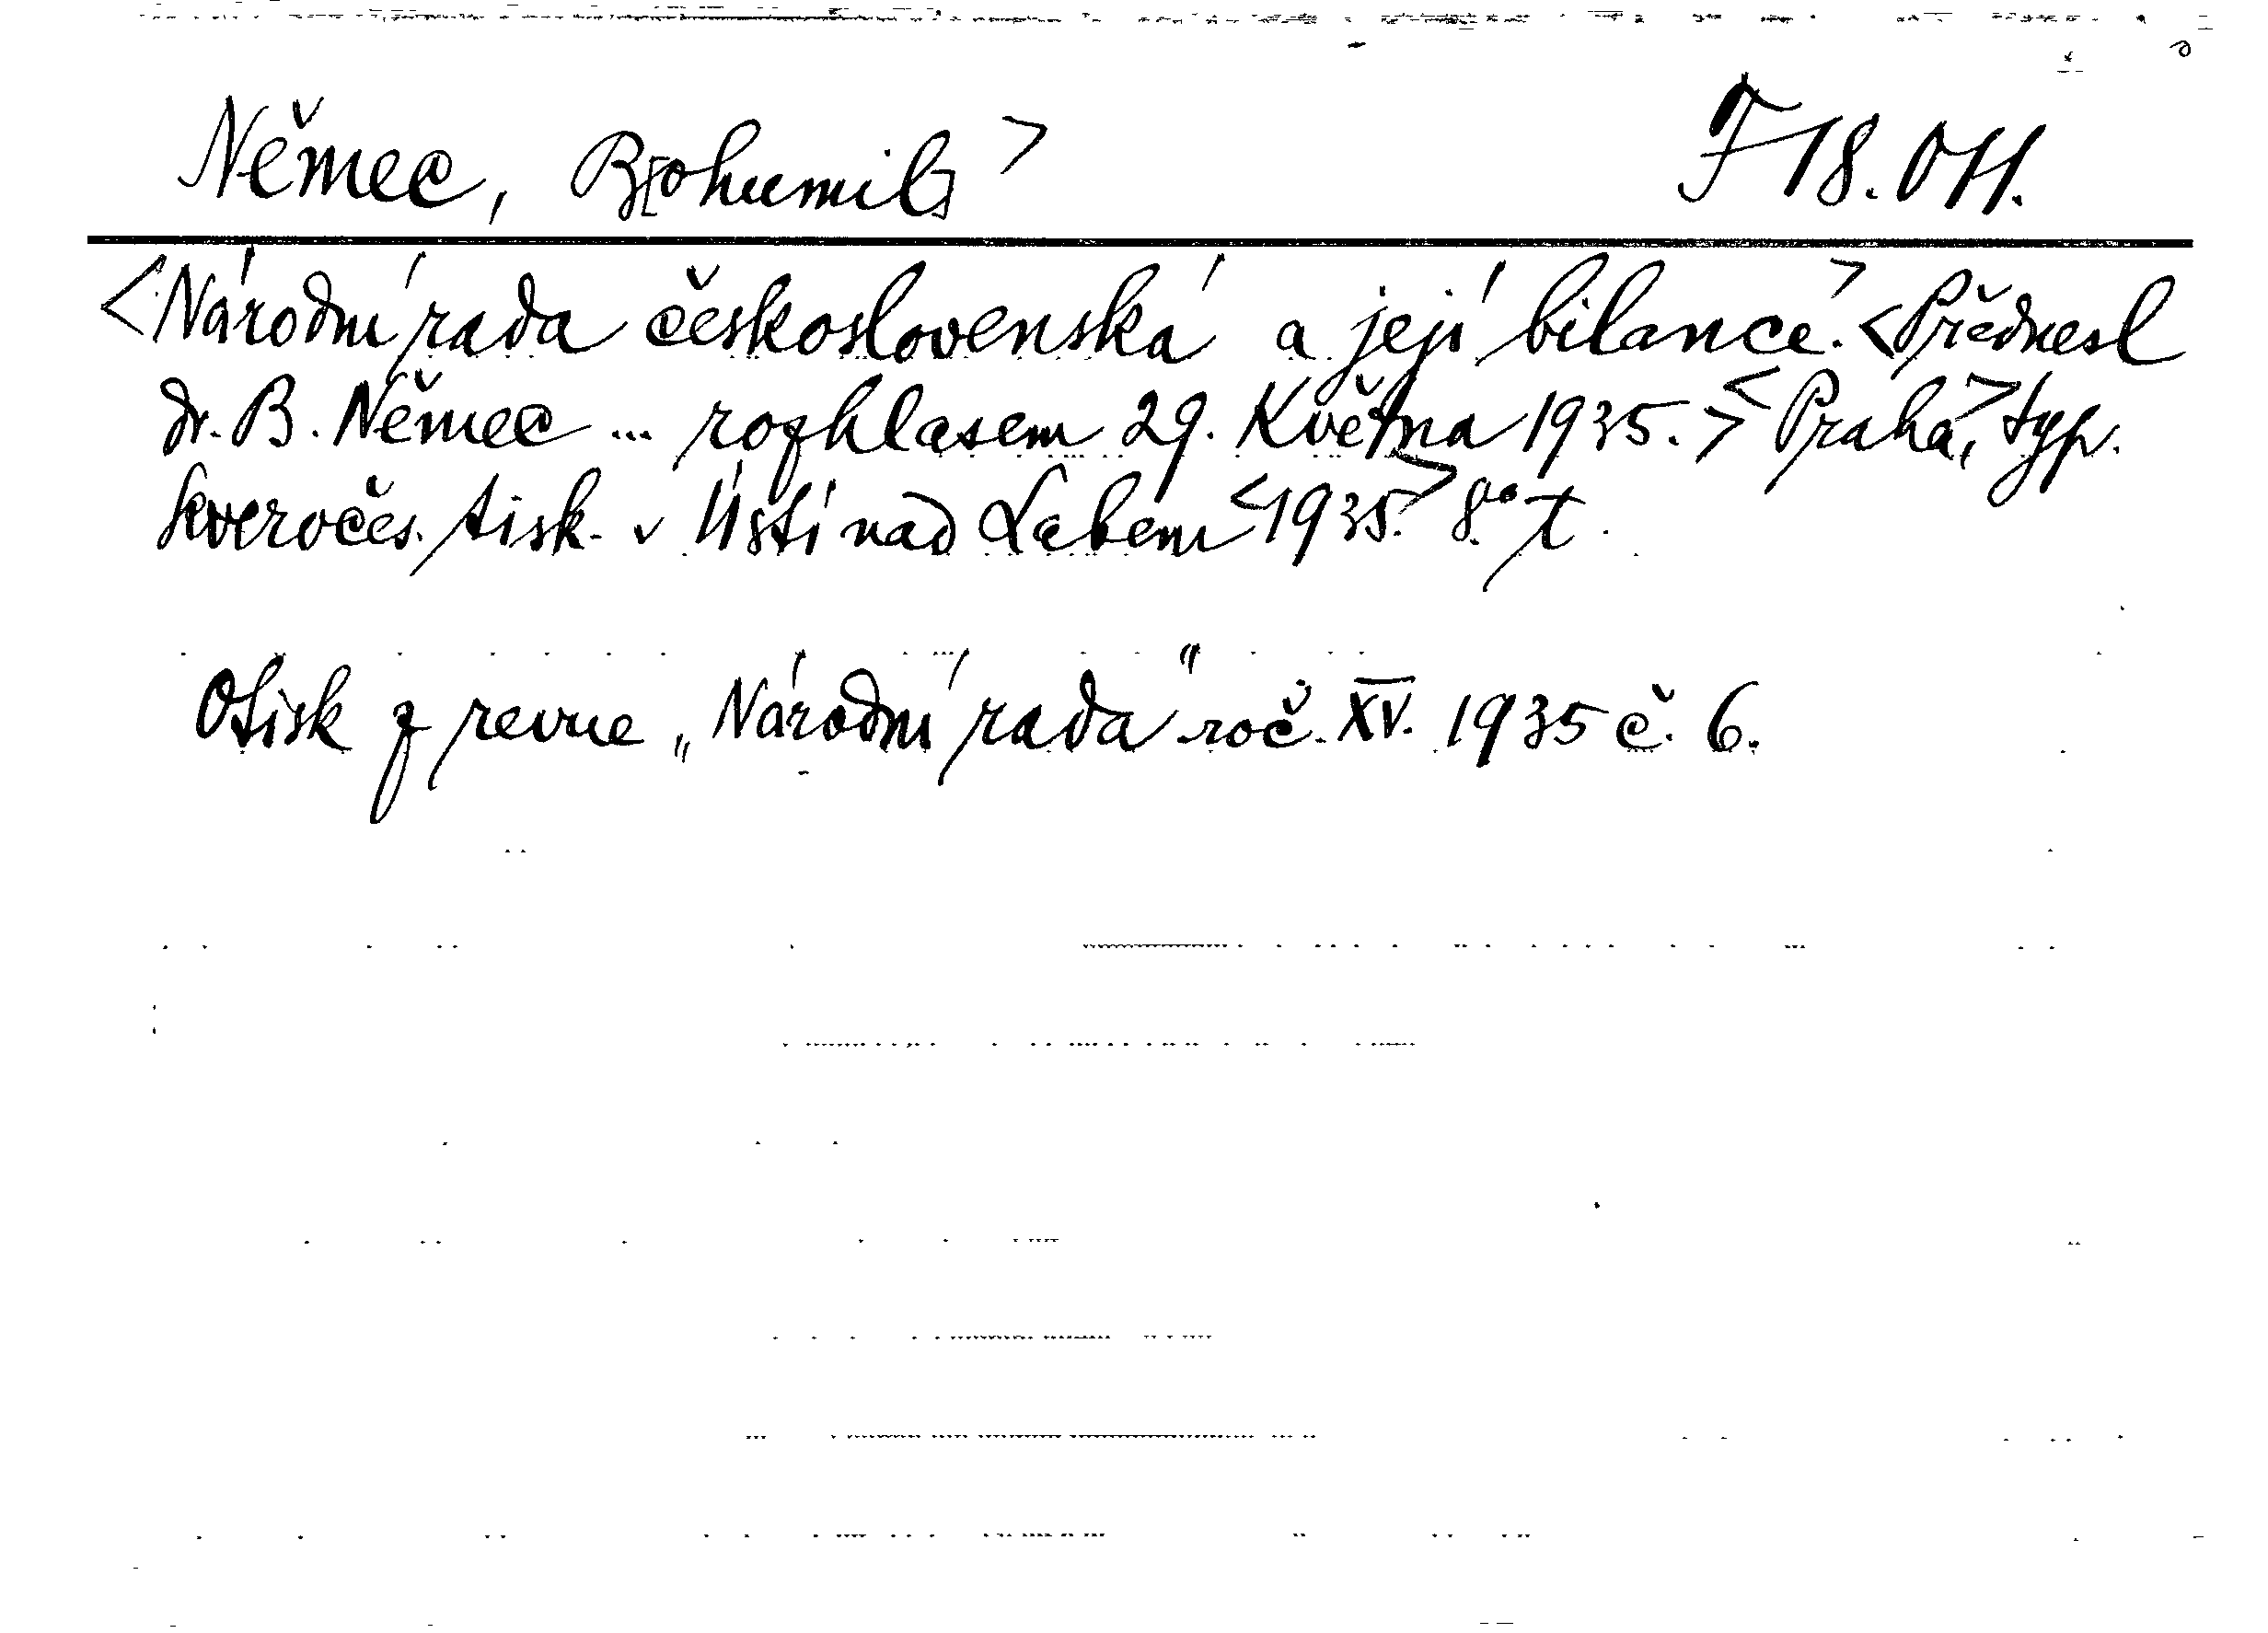 Němec, B[ohumil] > F 18.044.
<Národní rada československá a její bilance.> <Přednesl
dr. B. Němec ... rozhlasem 29. Května 1935.> <Praha,> typ.
Severočes. tisk. v Ústí nad Labem <1935.> 8.°
Otisk z revue „Národní rada" roč. XV. 1935 č. 6.